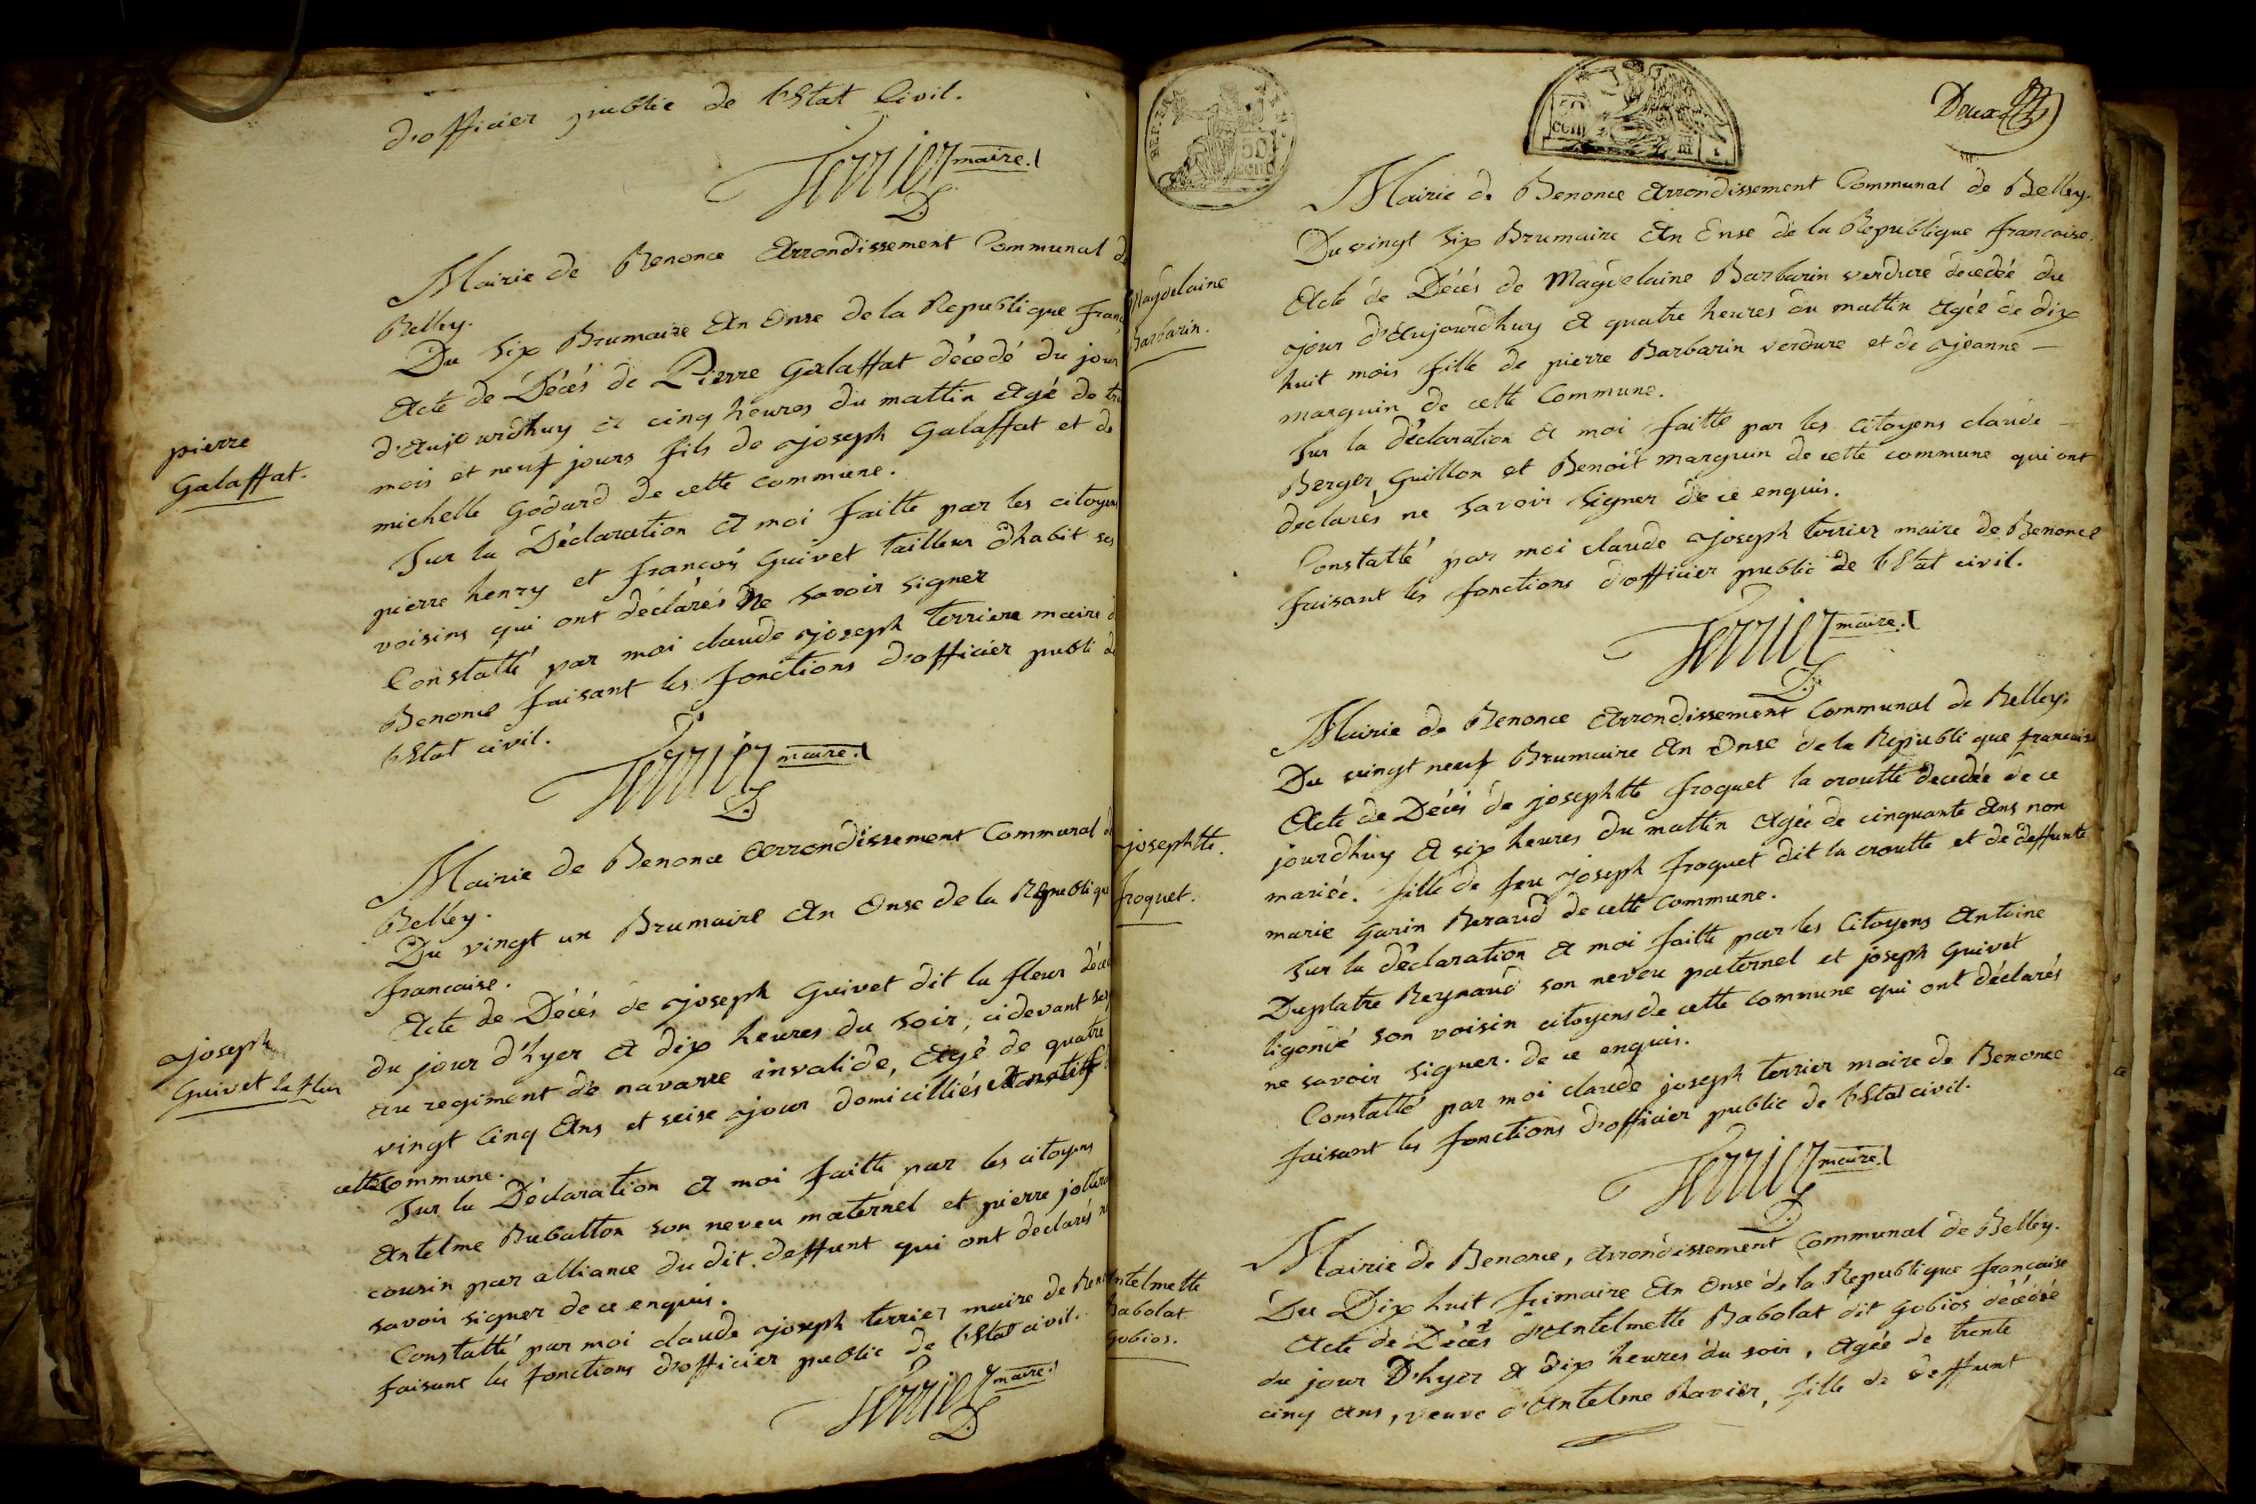 d'officier public de l'Etat Civil.
Terrier maire.
Mairie de Benonce Arrondissement Communal de
Belley.
Du Six Brumaire An Onse de la Republique franc
Acte de Décés de Pierre Galaffat décedé du jour
d'Aujourdhuy A cinq heures du mattin Agé de
mois et neuf jours fils de joseph Galaffat et de
michelle Godard de cette commune.
pierre
Galaffat.
Sur la Déclaration A moi faitte par les citoyens
pierre henry et françois Guivet tailleur dhabit ses
voisins qui ont déclarés Ne savoir signer
Constatté par moi claude joseph terriere maire
Benonce faisant les fonctions d'officier publi de
l'Etat civil.
Terrier maire.
Mairie de Benonce Arrondissement Communal de
Belley.
Du vingt un Brumaire An Onse de la Republique
francaise.
Acte de Décés de joseph Guivet dit la fleur décedé
du jour d'hyer A dix heures du soir, cidevant
au regiment de navarre invalide, Agé de quatre
vingt Cinq Ans et seise jour domicilliés
cette Commune.
joseph
Guivet la fleur
Sur la Déclaration A moi faitte par les citoyens
Antelme Babatton son neveu maternel et pierre
cousin par alliance du dit deffunt qui ont declarés ne
savoir signer de ce enquis.
Constatté par moi claude joseph terrier maire de Benonce
faisant les fonctions d'officier public de l'Etat civil.
Terrier maire.
REP. FRA.
50
cent
50
cent
Deux
Mairie de Benonce Arrondissement Communal de Belley.
Du vingt Six Brumaire An Onse de la Republique francaise.
Acte de Décés de Magdelaine Barbarin verdure decedée du
jour d'Aujourdhuy A quatre heures du mattin Agée de dix
huit mois fille de pierre Barbarin verdure et de jeanne —
marguin de cette Commune.
Magdelaine
Barbarin.
Sur la déclaration A moi faitte par les citoyens claude —
Berger Guillon et Benoit marguin de cette commune qui ont
declarés ne savoir signer de ce enquis.
Constatté par moi claude joseph terrier maire de Benonce
faisant les fonctions d'officier public de l'Etat civil.
Terrier maire.
Mairie de Benonce Arrondissement Communal de Belley.
Du vingt neuf Brumaire An Onse de la Republique francaise
Acte de Décés de josephtte froquet la croutte decedée de ce
jourdhuy A six heures du mattin Agée de cinquante Ans non
mariée. fille de feu joseph froquet dit la croutte et de deffunte
marie Garin Beraud de cette Commune.
josephtte.
froquet.
Sur la déclaration A moi faitte par les Citoyens Antoine
Duplatre Reynaud son neveu paternel et joseph Guivet
ligonié son voisin citoyens de cette commune qui ont déclarés
ne savoir signer. de ce enquis.
Constatté par moi claude joseph terrier maire de Benonce
faisant les fonctions d'officier public de l'Etat civil.
Terrier maire.
Mairie de Benonce, Arrondissement Communal de Belley.
Du Dix huit frimaire An Onse de la Republique francaise
Acte de Décés d'Antelmette Babolat dit Gobios décédée
du jour D'hyer A dix heures du soir, Agée de trente
cinq Ans, veuve d'Antelme Ravier, fille de deffunt
Antelmette
Babolat
Gobios.